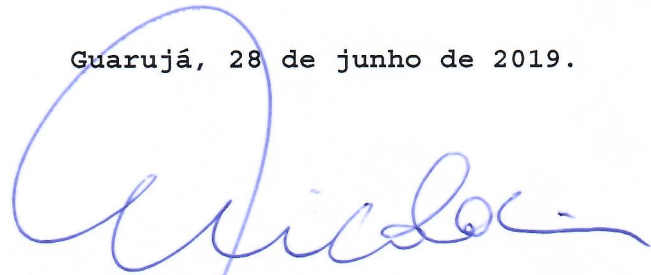 Guarujá, 28 de junho de 2019.